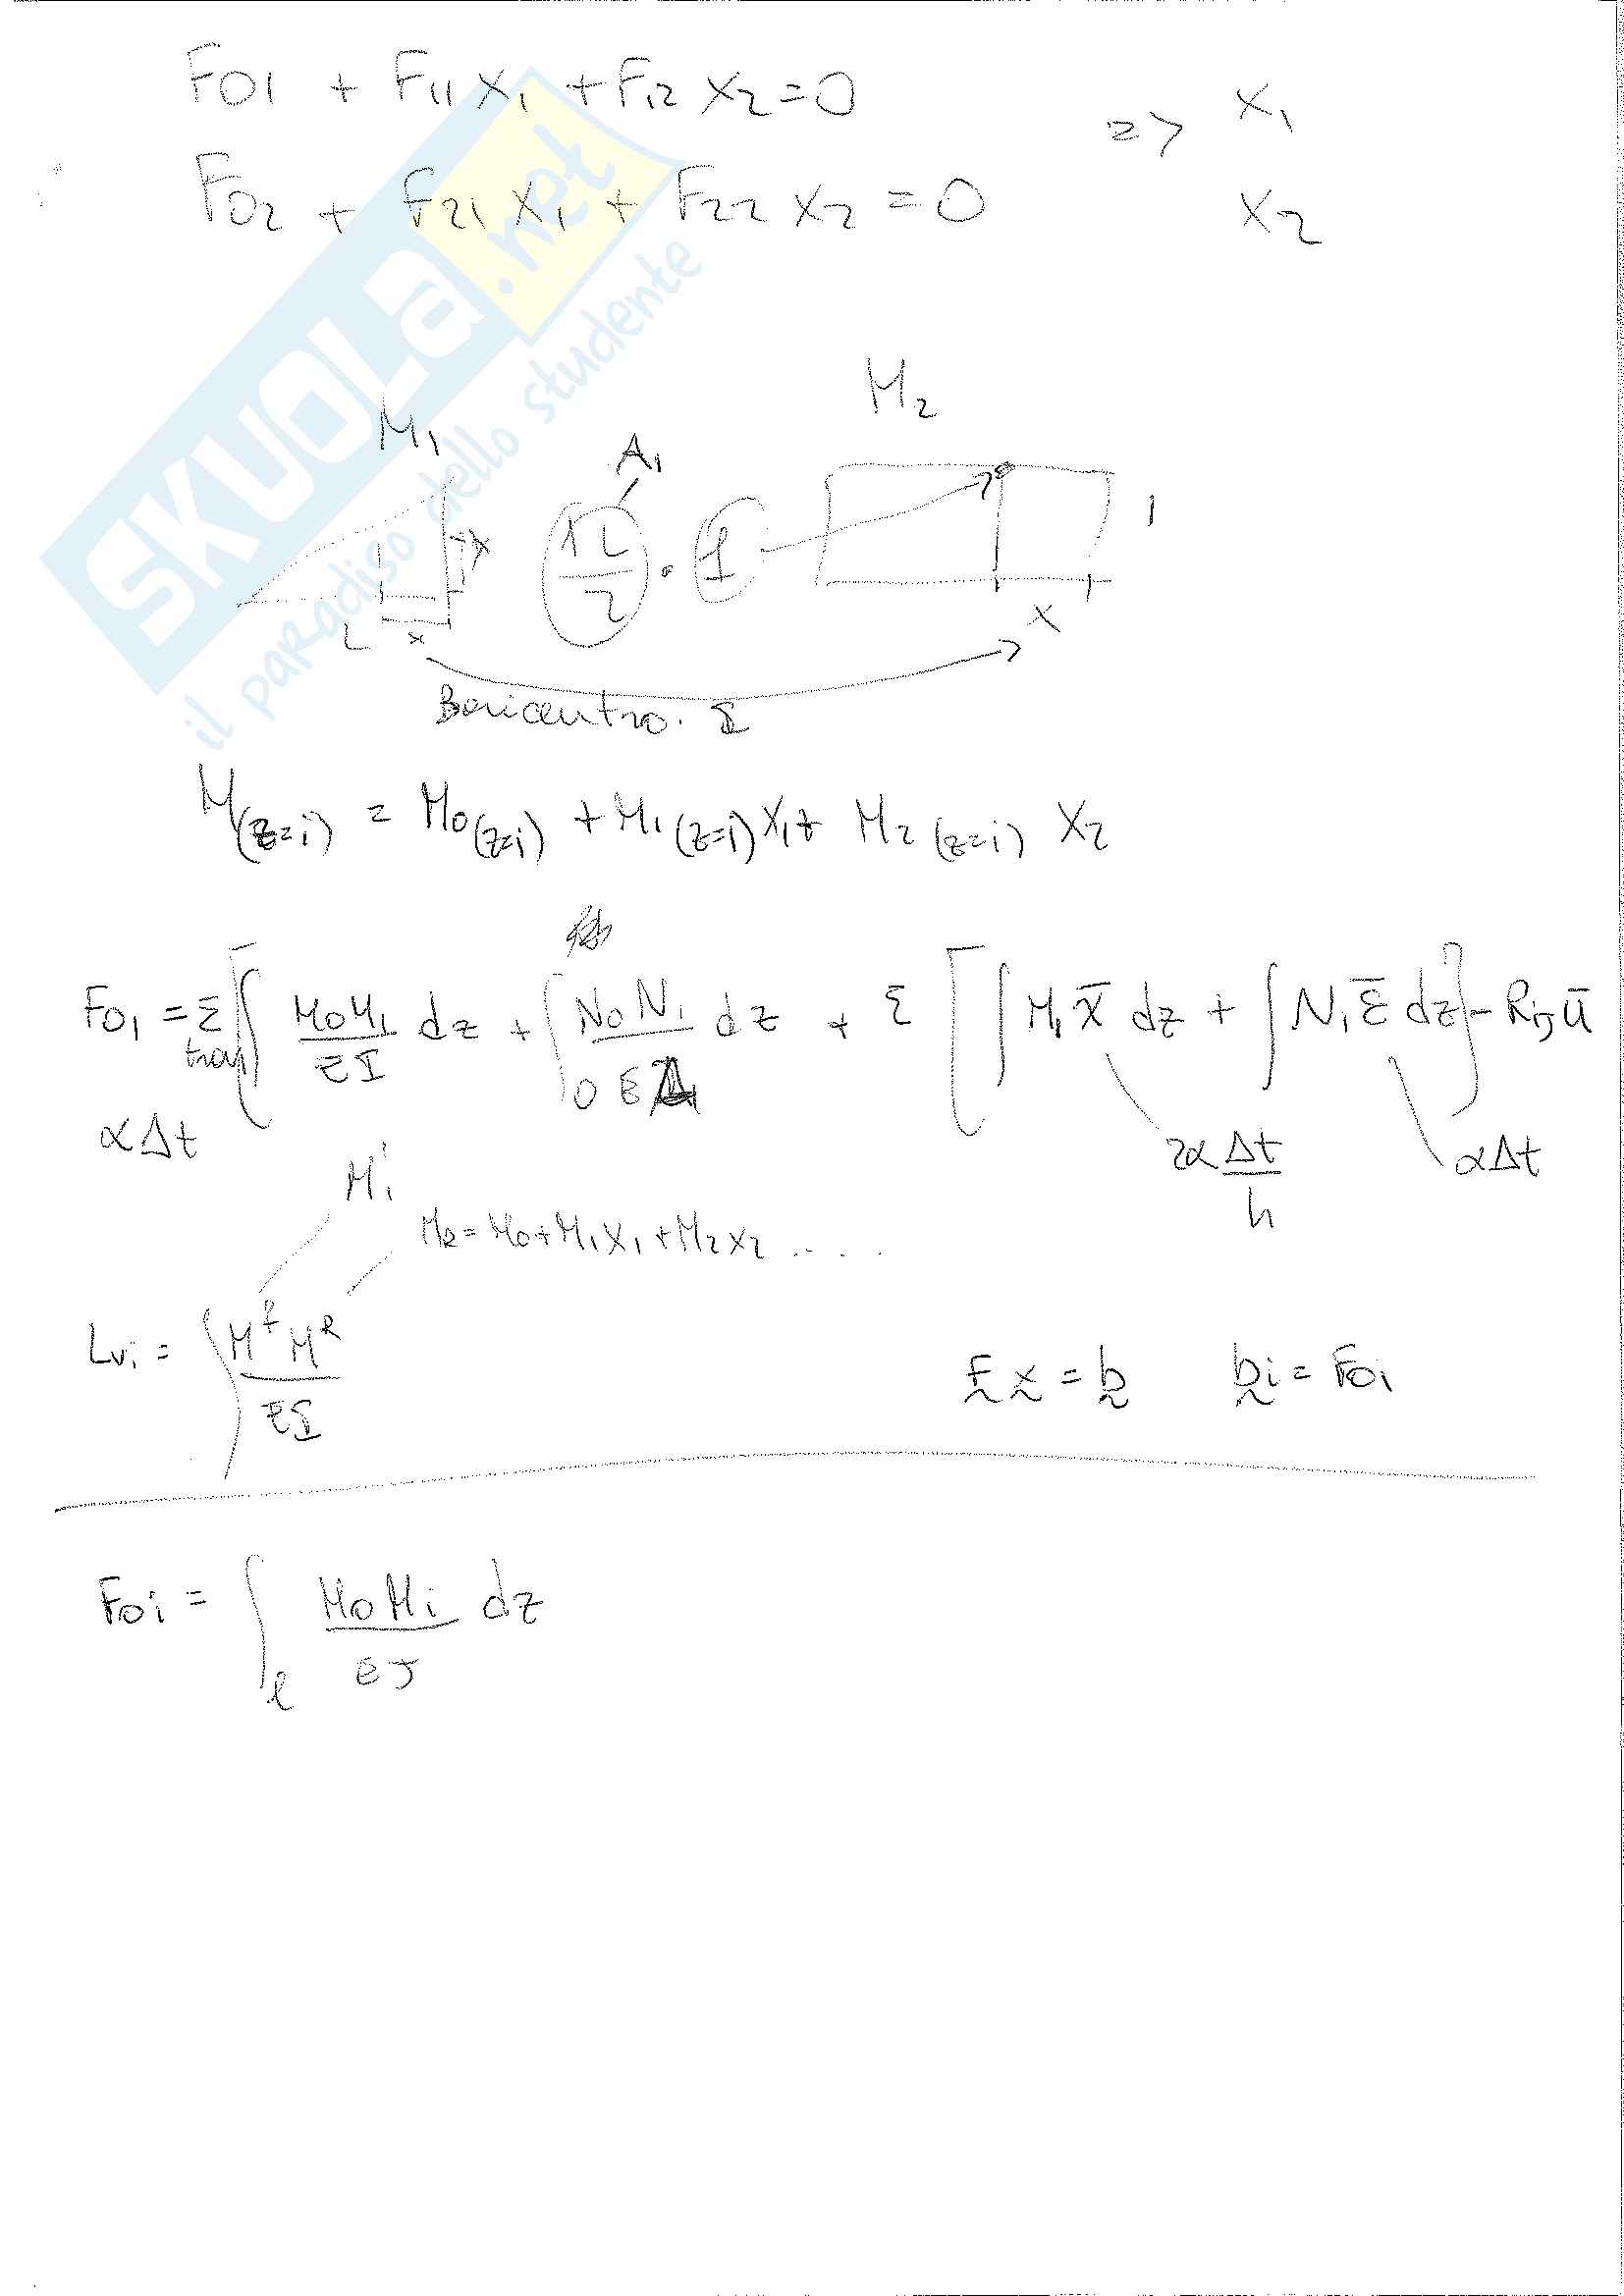 F01 + F11 x1 + F12 x2 = 0 => x1
F02 + F21 x1 + F22 x2 = 0 x2
SKUOLa.net
il paradiso dello studente
M1 A1 M2
x x2/2 · 1 1
L x x
Baricentro. I
M(z=i) = M0(z=i) + M1(z=i) x1 + M2(z=i) x2
F01 = Σ trav [ ∫ M0M1/EI dz + ∫0 N0N1/EA dz + Σ [ ∫ M1 χ̄ dz + ∫ N1 ε̄ dz ] - Rij ū
αΔt 2αΔt/h αΔt
Mi
MR = M0 + M1x1 + M2x2 ....
Lvi = ∫ Mf MR/EI
F x = b bi = F0i
F0i = ∫l M0Mi/EJ dz